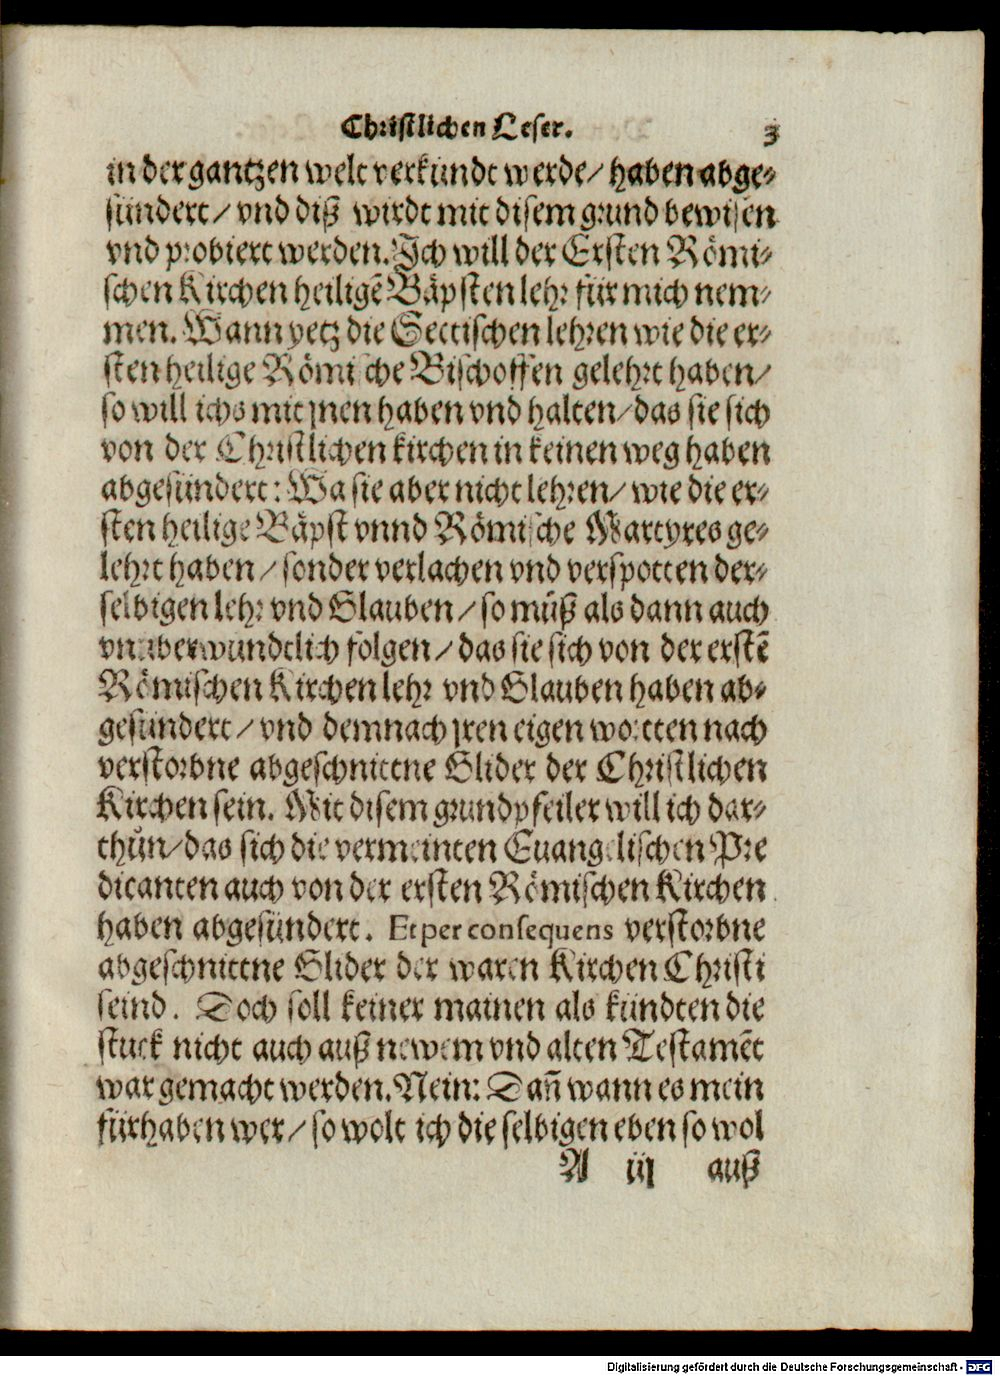 Christlichen Leser. 3
in der gantzen welt verkündt werde/ haben abge⸗
sündert/ vnd diß wirdt mit disem grund bewisen
vnd probiert werden. Ich will der Ersten Römi⸗
schen Kirchen heiligē Bäpsten lehr für mich nem⸗
men. Wann yetz die Sectischen lehren wie die er⸗
sten heilige Römische Bischoffen gelehrt haben/
so will ichs mit jnen haben vnd halten/ das sie sich
von der Christlichen kirchen in keinen weg haben
abgesündert: Wa sie aber nicht lehren/ wie die er⸗
sten heilige Bäpst vnnd Römische Martyres ge⸗
lehrt haben/ sonder verlachen vnd verspotten der⸗
selbigen lehr vnd Glauben/ so müß als dann auch
vnüberwundtlich folgen/ das sie sich von der erstē
Römischen Kirchen lehr vnd Glauben haben ab⸗
gesündert/ vnd demnach jren eigen wortten nach
verstorbne abgeschnittne Glider der Christlichen
Kirchen sein. Mit disem grundpfeiler will ich dar⸗
thůn/ das sich die vermeinten Euangelischen Pre
dicanten auch von der ersten Römischen Kirchen
haben abgesündert. Et per consequens verstorbne
abgeschnittne Glider der waren Kirchen Christi
seind. Doch soll keiner mainen als kündten die
stuck nicht auch auß newem vnd alten Testamēt
war gemacht werden. Nein: Dañ wann es mein
fürhaben wer/ so wolt ich die selbigen eben so wol
A iij auß
Digitalisierung gefördert durch die Deutsche Forschungsgemeinschaft - DFG